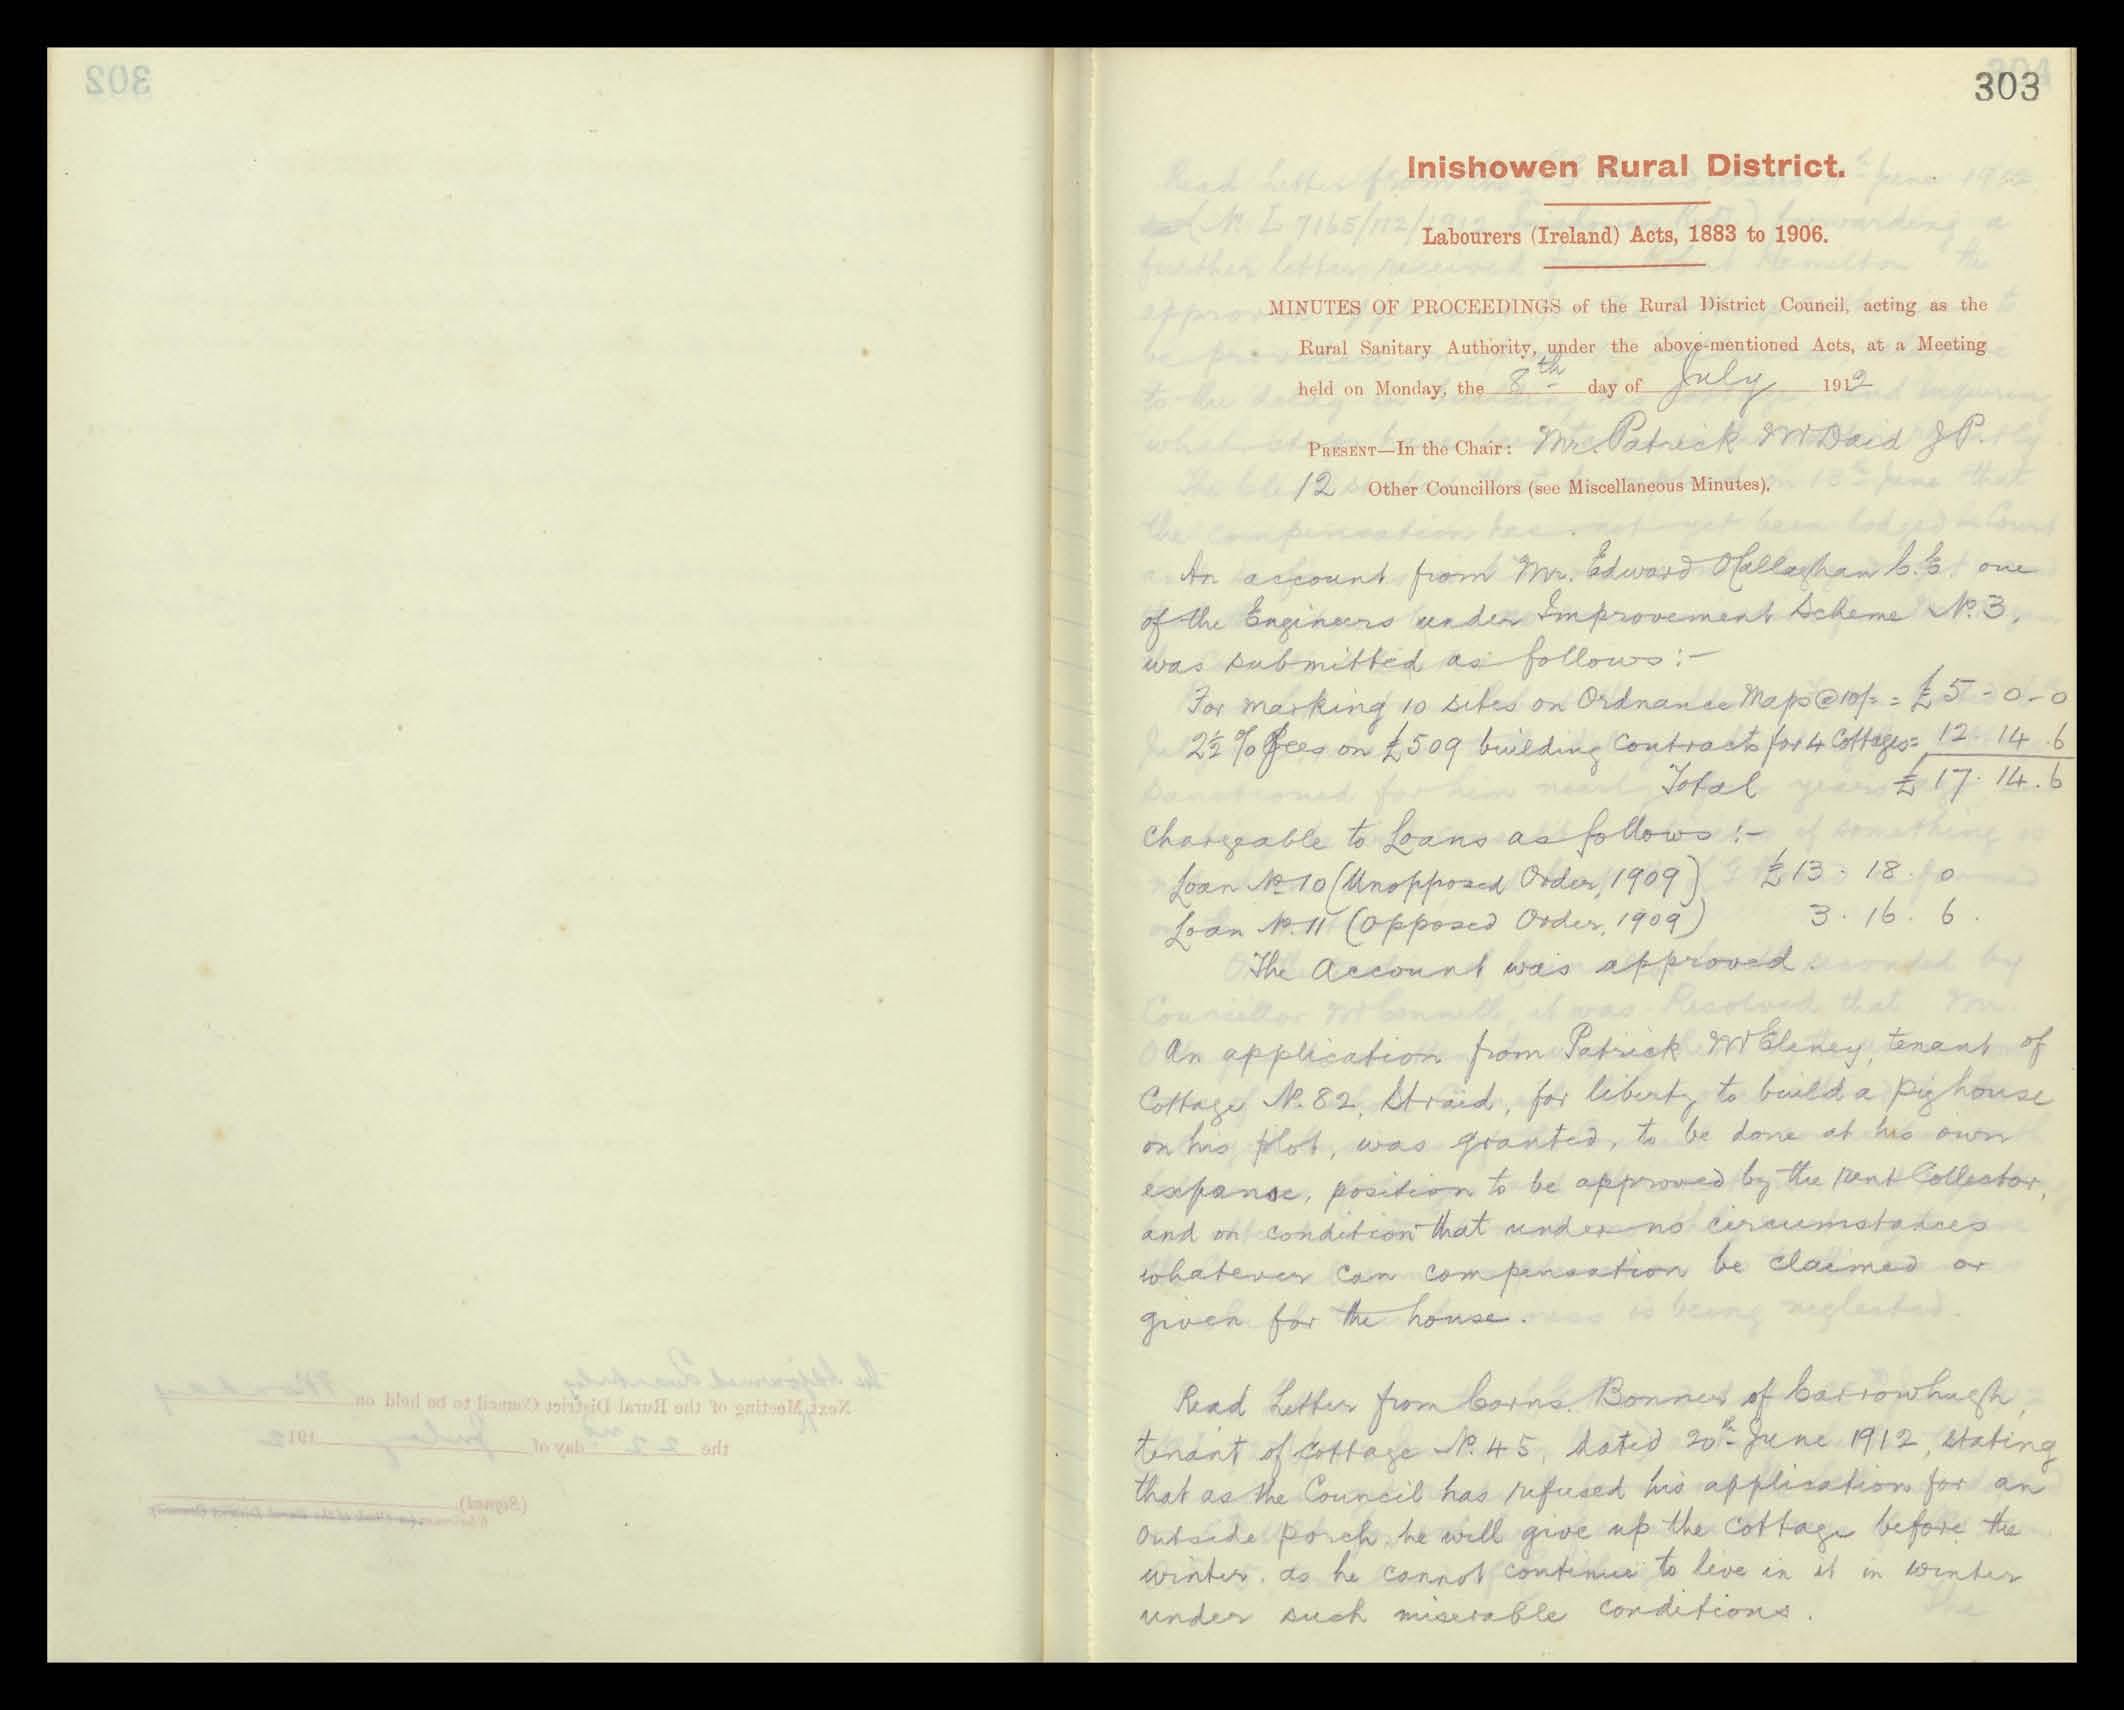 303
Inishowen Rural District.
Labourers (Ireland) Acts, 1883 to 1906.
MINUTES OF PROCEEDINGS of the Rural District Council, acting as the
Rural Sanitary Authority, under the above-mentioned Acts, at a Meeting
held on Monday, the 8th day of July 1912
PRESENT—In the Chair: Mr. Patrick McDaid J.P.
12 Other Councillors (see Miscellaneous Minutes).
An account from Mr. Edward O'Callaghan C.E. one
of the Engineers under Improvement Scheme No. 3,
was submitted as follows:-
For marking 10 sites on Ordnance Maps @ 10/- = £5-0-0
2½ % fees on £509 building contracts for 4 Cottages= 12. 14. 6
Total £17. 14. 6
Chargeable to Loans as follows:-
Loan No 10 (Unopposed Order, 1909) £13. 18. 0
Loan No. 11 (Opposed Order, 1909) 3. 16. 6.
The Account was approved.
An application from Patrick McEleney, tenant of
Cottage No. 82, Straid, for liberty to build a pig house
on his plot, was granted, to be done at his own
expense, position to be approved by the rent Collector,
and on condition that under no circumstances
whatever can compensation be claimed or
given for the house.
Read Letter from Corns. Bonner of Carrowhugh,
tenant of cottage No. 45, dated 20th June 1912, stating
that as the Council has refused his application for an
outside porch, he will give up the cottage before the
winter. as he cannot continue to live in it in winter
under such miserable conditions.